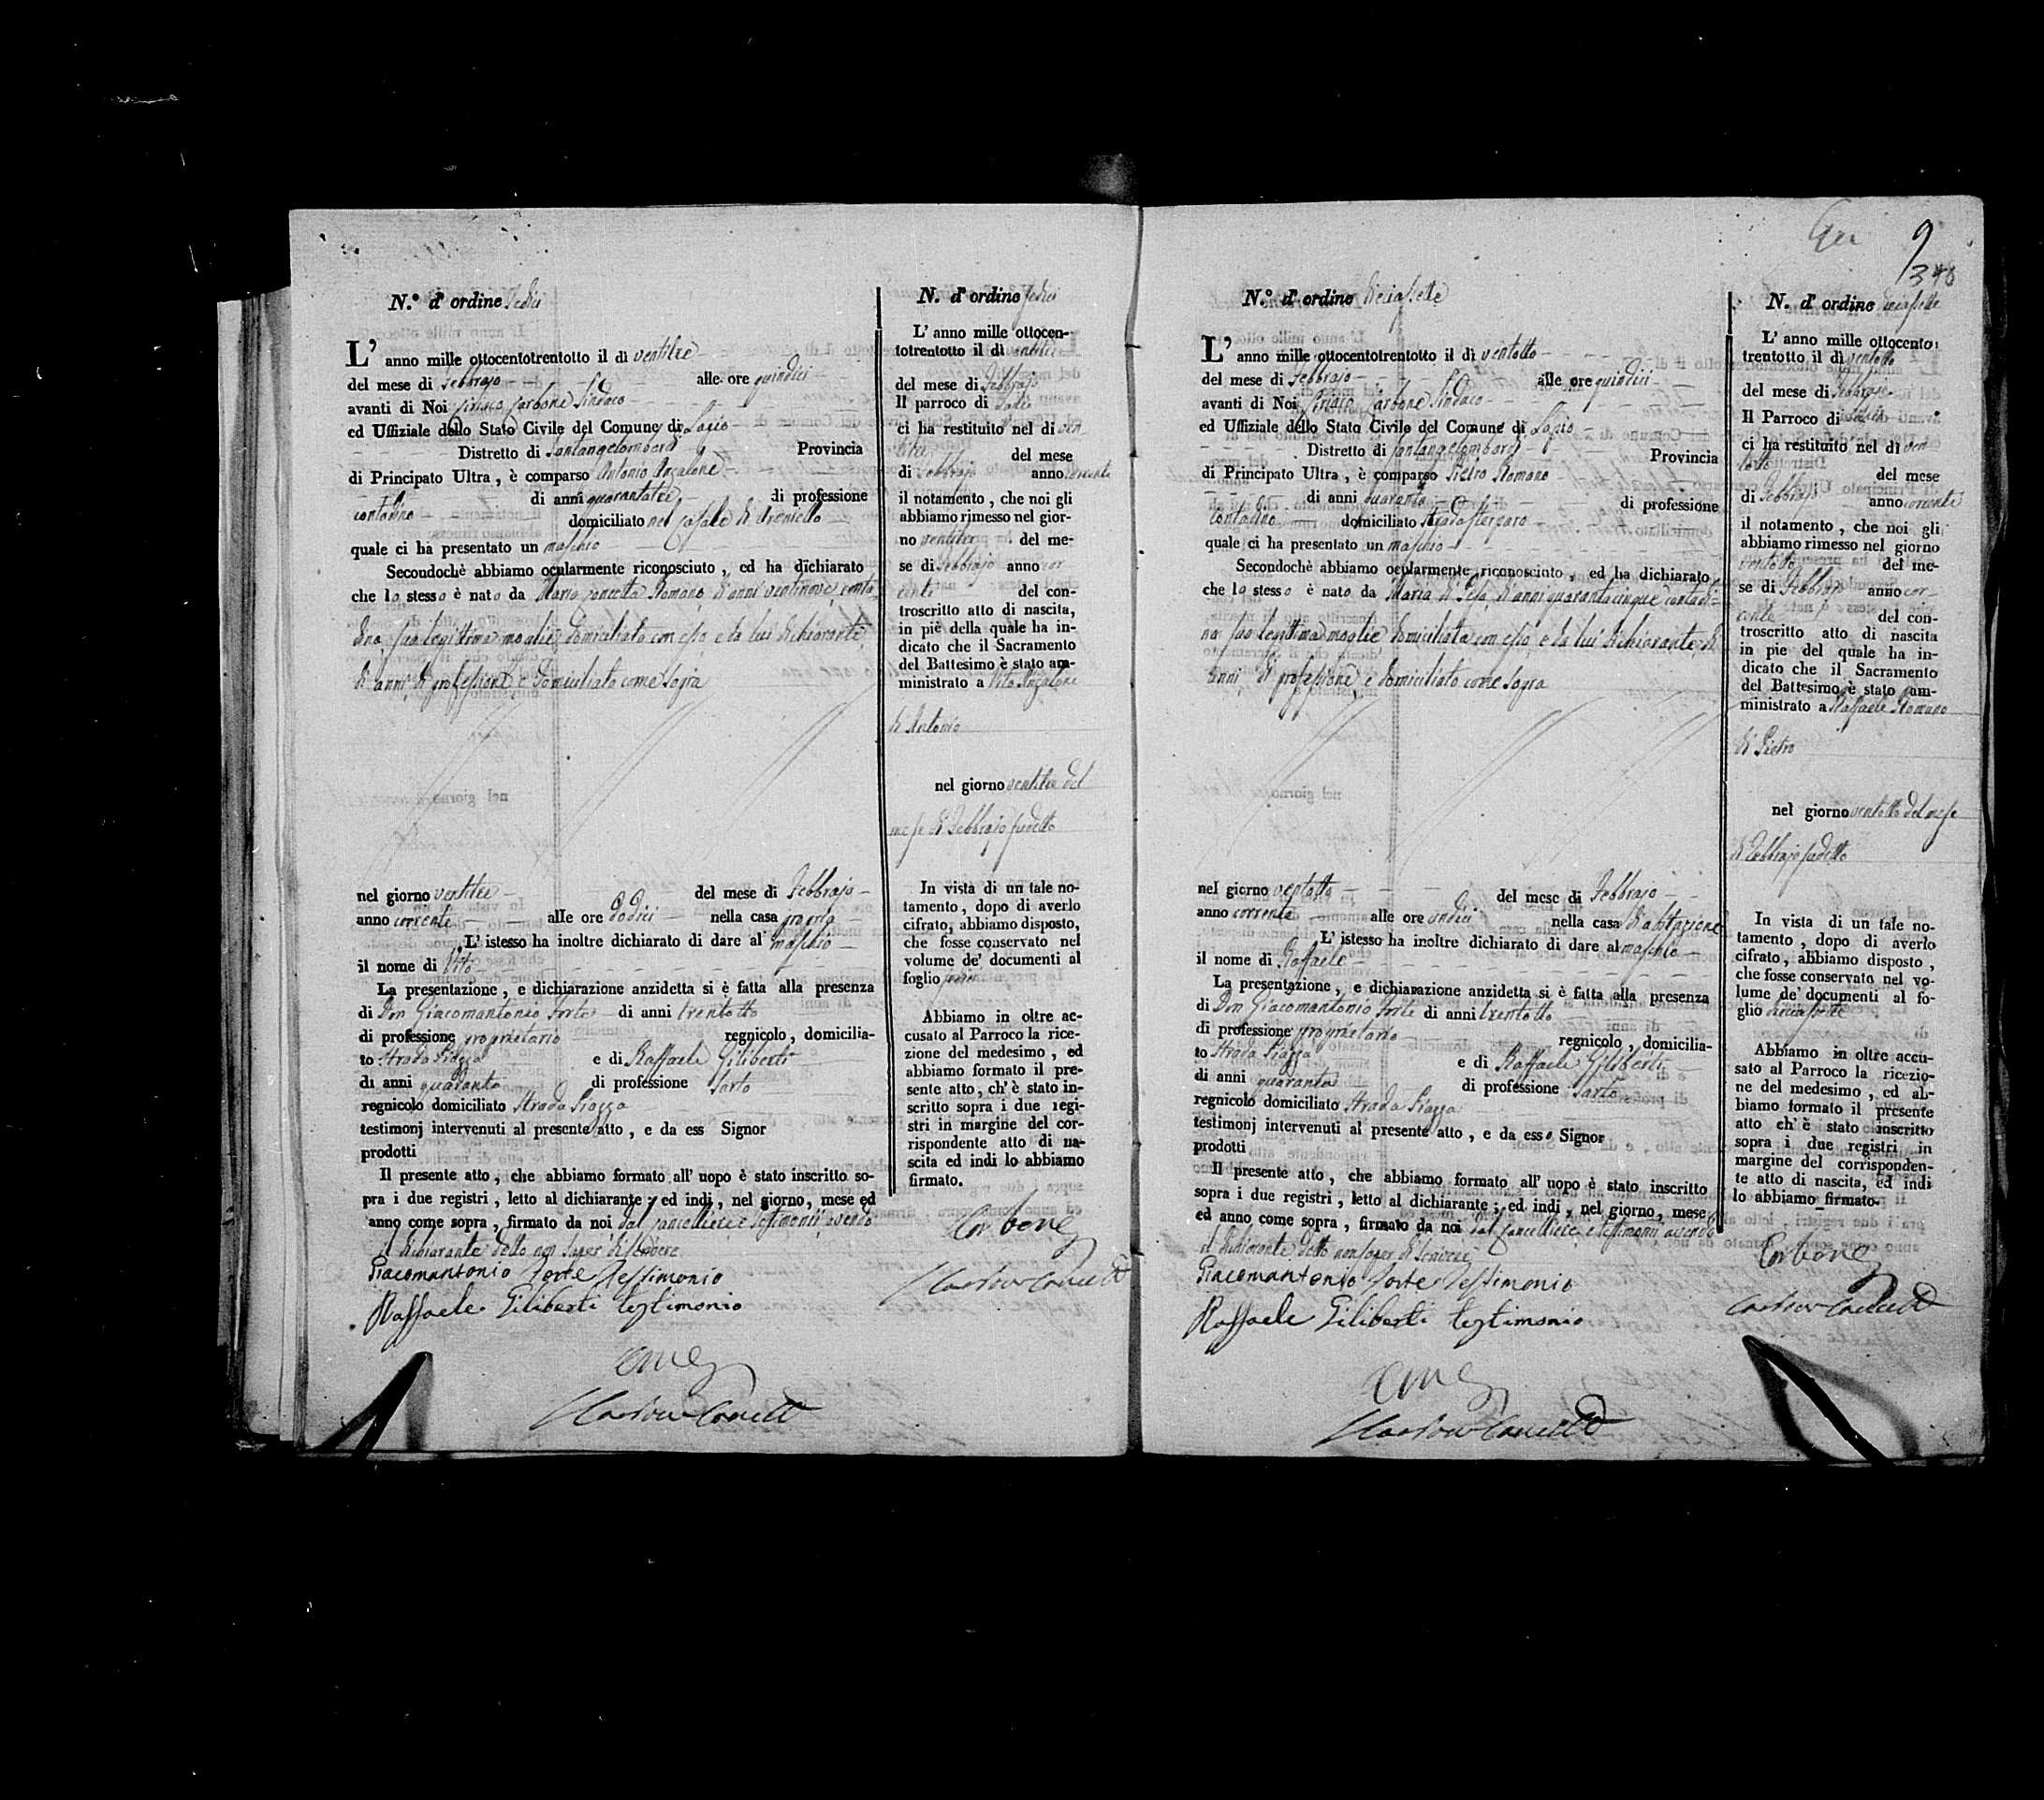 N.° d' ordine Sedici
L' anno mille ottocentotrentotto il dì ventitre
del mese di Febbrajo alle ore quindici
avanti di Noi Ciriaco Carbone Sindaco
ed Uffiziale dello Stato Civile del Comune di Lapio
Distretto di Santangelombardi Provincia
di Principato Ultra , è comparso Antonio Anzalone
di anni quarantatre di professione
contadino domiciliato nel Casale di
quale ci ha presentato un maschio
Secondochè abbiamo ocularmente riconosciuto , ed ha dichiarato
che lo stesso è nato da Maria Concetta Romano, d'anni ventinove, conta
dina, sua legittima moglie, domiciliata con esso, e da lui dichiarante
di anni, di professione, e domiciliato come sopra
nel giorno ventitre del mese di Febbrajo
anno corrente alle ore dodici nella casa propria
L' istesso ha inoltre dichiarato di dare al maschio
il nome di Vito
La presentazione , e dichiarazione anzidetta si è fatta alla presenza
di Don Giacomantonio Forte di anni trentotto
di professione proprietario regnicolo , domicilia-
to Strada Piazza e di Raffaele Giliberti
di anni quaranta di professione Sarto
regnicolo domiciliato Strada Piazza
testimonj intervenuti al presente atto , e da ess Signor
prodotti
Il presente atto , che abbiamo formato all' uopo è stato inscritto so-
pra i due registri , letto al dichiarante , ed indi , nel giorno , mese ed
anno come sopra , firmato da noi dal Cancelliere e testimonii avendo
il dichiarante detto non saper di scrivere
Giacomantonio Forte Testimonio
Raffaele Giliberti testimonio
N. d' ordine Sedici
L' anno mille ottocen-
totrentotto il dì ventitre
del mese di Febbrajo
Il parroco di Lapio
ci ha restituito nel dì ven
titre del mese
di Febbrajo anno corrente
il notamento , che noi gli
abbiamo rimesso nel gior-
no ventitre del me-
se di Febbrajo anno cor
rente del con-
troscritto atto di nascita,
in piè della quale ha in-
dicato che il Sacramento
del Battesimo è stato am-
ministrato a Vito Anzalone
di Antonio
nel giorno ventitre del
mese di Febbrajo sudetto
In vista di un tale no-
tamento , dopo di averlo
cifrato, abbiamo disposto,
che fosse conservato nel
volume de' documenti al
foglio
Abbiamo in oltre ac-
cusato al Parroco la rice-
zione del medesimo , ed
abbiamo formato il pre-
sente atto, ch' è stato in-
scritto sopra i due regi-
stri in margine del cor-
rispondente atto di na-
scita ed indi lo abbiamo
firmato.
Carbone
9
340
N.° d' ordine Diciassette
L' anno mille ottocentotrentotto il dì ventotto
del mese di Febbrajo alle ore quindici
avanti di Noi Ciriaco Carbone Sindaco
ed Uffiziale dello Stato Civile del Comune di Lapio
Distretto di Santangelombardi Provincia
di Principato Ultra , è comparso Pietro Romano
di anni quaranta di professione
contadino domiciliato Strada
quale ci ha presentato un maschio
Secondochè abbiamo ocularmente riconosciuto , ed ha dichiarato
che lo stesso è nato da Maria di Feo, d'anni quarantacinque contadi-
na sua legittima moglie domiciliata con esso, e da lui dichiarante, di
anni, di professione, e domiciliato come sopra
nel giorno ventotto del mese di Febbrajo
anno corrente alle ore undici nella casa d'abitazione
L' istesso ha inoltre dichiarato di dare al maschio
il nome di Raffaele
La presentazione , e dichiarazione anzidetta si è fatta alla presenza
di Don Giacomantonio Forte di anni trentotto
di professione proprietario regnicolo , domicilia-
to Strada Piazza e di Raffaele Giliberti
di anni quaranta di professione Sarto
regnicolo domiciliato Strada Piazza
testimonj intervenuti al presente atto , e da esso Signor
prodotti
Il presente atto , che abbiamo formato all' uopo è stato inscritto
sopra i due registri , letto al dichiarante ; ed indi , nel giorno , mese
ed anno come sopra , firmato da noi dal Cancelliere, e testimonii avendo
il dichiarante detto non saper di scrivere
Giacomantonio Forte Testimonio
Raffaele Giliberti testimonio
N. d' ordine Diciassette
L' anno mille ottocento
trentotto il dì ventotto
del mese di Febbrajo
Il Parroco di Lapio
ci ha restituito nel dì ven
totto del mese
di Febbrajo anno corrente
il notamento , che noi gli
abbiamo rimesso nel giorno
ventotto del me-
se di Febbrajo anno cor-
rente del con-
troscritto atto di nascita
in pie del quale ha in-
dicato che il Sacramento
del Battesimo è stato am-
ministrato a Raffaele Romano
di Pietro
nel giorno ventotto del mese
di Febbrajo sudetto
In vista di un tale no-
tamento , dopo di averlo
cifrato , abbiamo disposto ,
che fosse conservato nel vo-
lume de' documenti al fo-
glio diciassette
Abbiamo in oltre accu-
sato al Parroco la ricezio-
ne del medesimo , ed ab-
biamo formato il presente
atto ch' è stato inscritto
sopra i due registri in
margine del corrisponden-
te atto di nascita, ed indi
lo abbiamo firmato.
Carbone